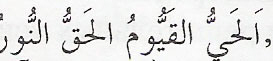 ,اَلحَيُّ القَيُّومُ الحَقُّ النُّورُ